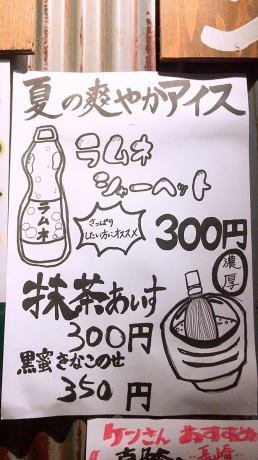 夏の爽やかアイス
ラムネ
シャーベット
ラムネ
さっぱり
したい方にオススメ
300円
濃厚
抹茶あいす
300円
黒蜜きなこのせ
350円
ケンさん おすすめ
長崎